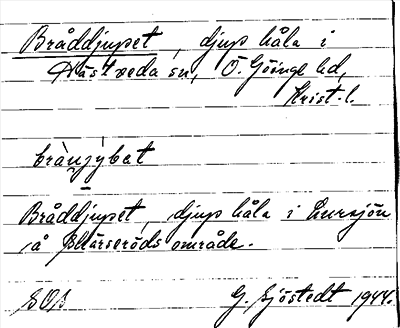 Bråddjupet, djup håla i
Hästveda sn, Ö. Göinge hd,
Krist. l.
bràŋjybət
Bråddjupet, djup håla i Lursjön
å Skärseröds område.
SOB G. Sjöstedt 1944.